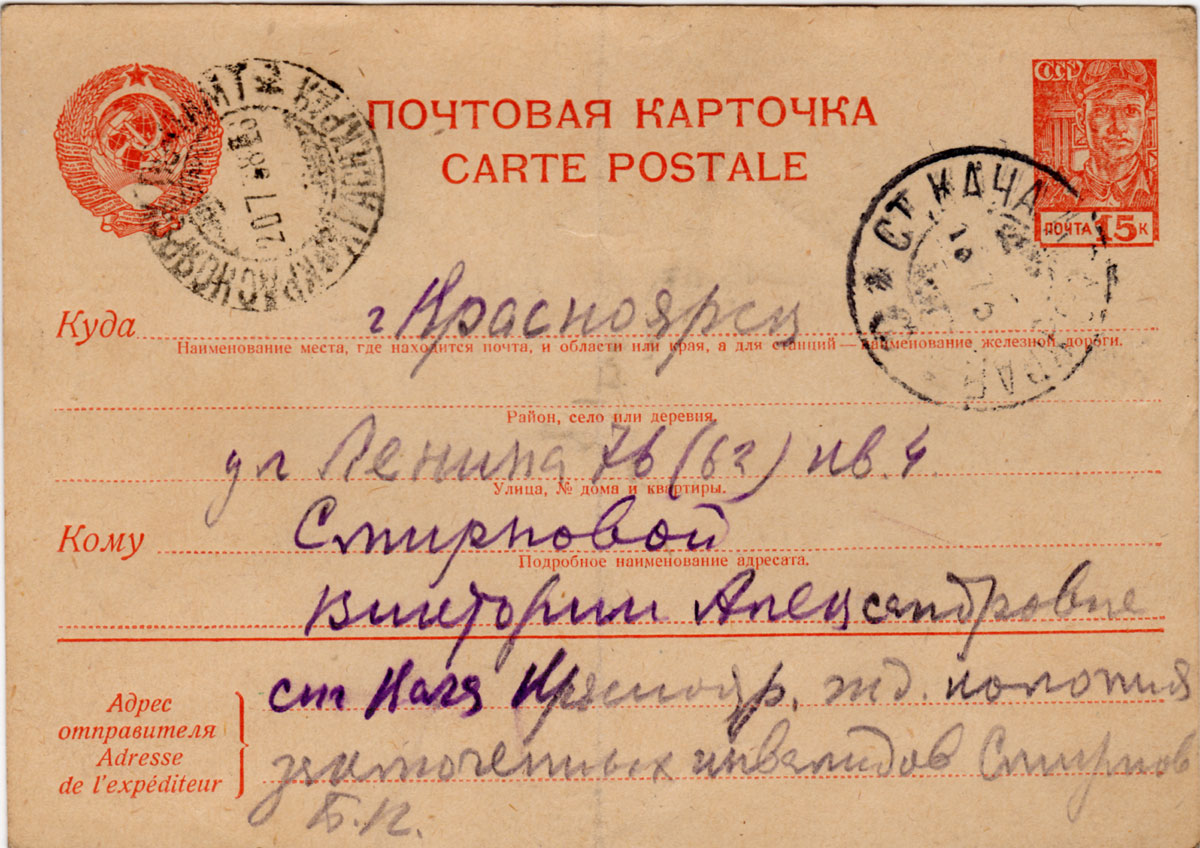 СССР
ПОЧТОВАЯ КАРТОЧКА
CARTE POSTALE
ПОЧТА 15 К
20 7
СТ КАЧА
Куда г Красноярск
Наименование места, где находится почта, и области или края, а для станций — наименование железной дороги.
Район, село или деревня.
ул Ленина 76 (62) кв. 4
Улица, № дома и квартиры.
Кому Смирновой
Подробное наименование адресата.
Виктории Александровне
Адрес отправителя
Adresse de l'expéditeur
ст Кача Краснояр. жд. колония
заключенных инвалидов Смирнов
Б.К.